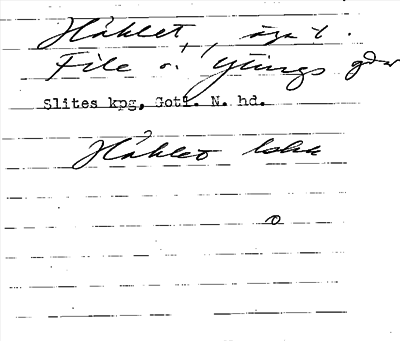 Håhlet, äga t.
File o. Ytings gdar
Slites kpg, Gotl. N. hd.
Håhlet